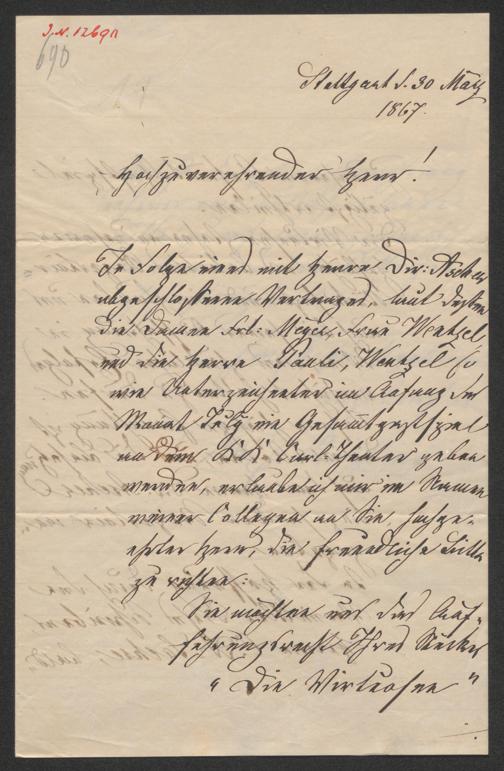 J. N. 12690
690
Stuttgart d. 30 März
1867.
Hochzuverehrender Herr!
In Folge eines mit Herrn Dir: Ascher
abgeschlossenen Vertrages, laut dessen
die Damen Frl: Meyer, Frau Wentzel,
und die Herrn Pauli, Wentzel so
wie Unterzeichneter im Anfang des
Monat July ein Gesammtgastspiel
an dem K. K. Carl-Theater geben
werden, erlaube ich mir im Namen
meiner Collegen an Sie, hochge-
ehrter Herr, die freundliche Bitte
zu richten:
Sie möchten uns das Auf-
führungsrecht Ihres Stückes
"Die Virtuosen"